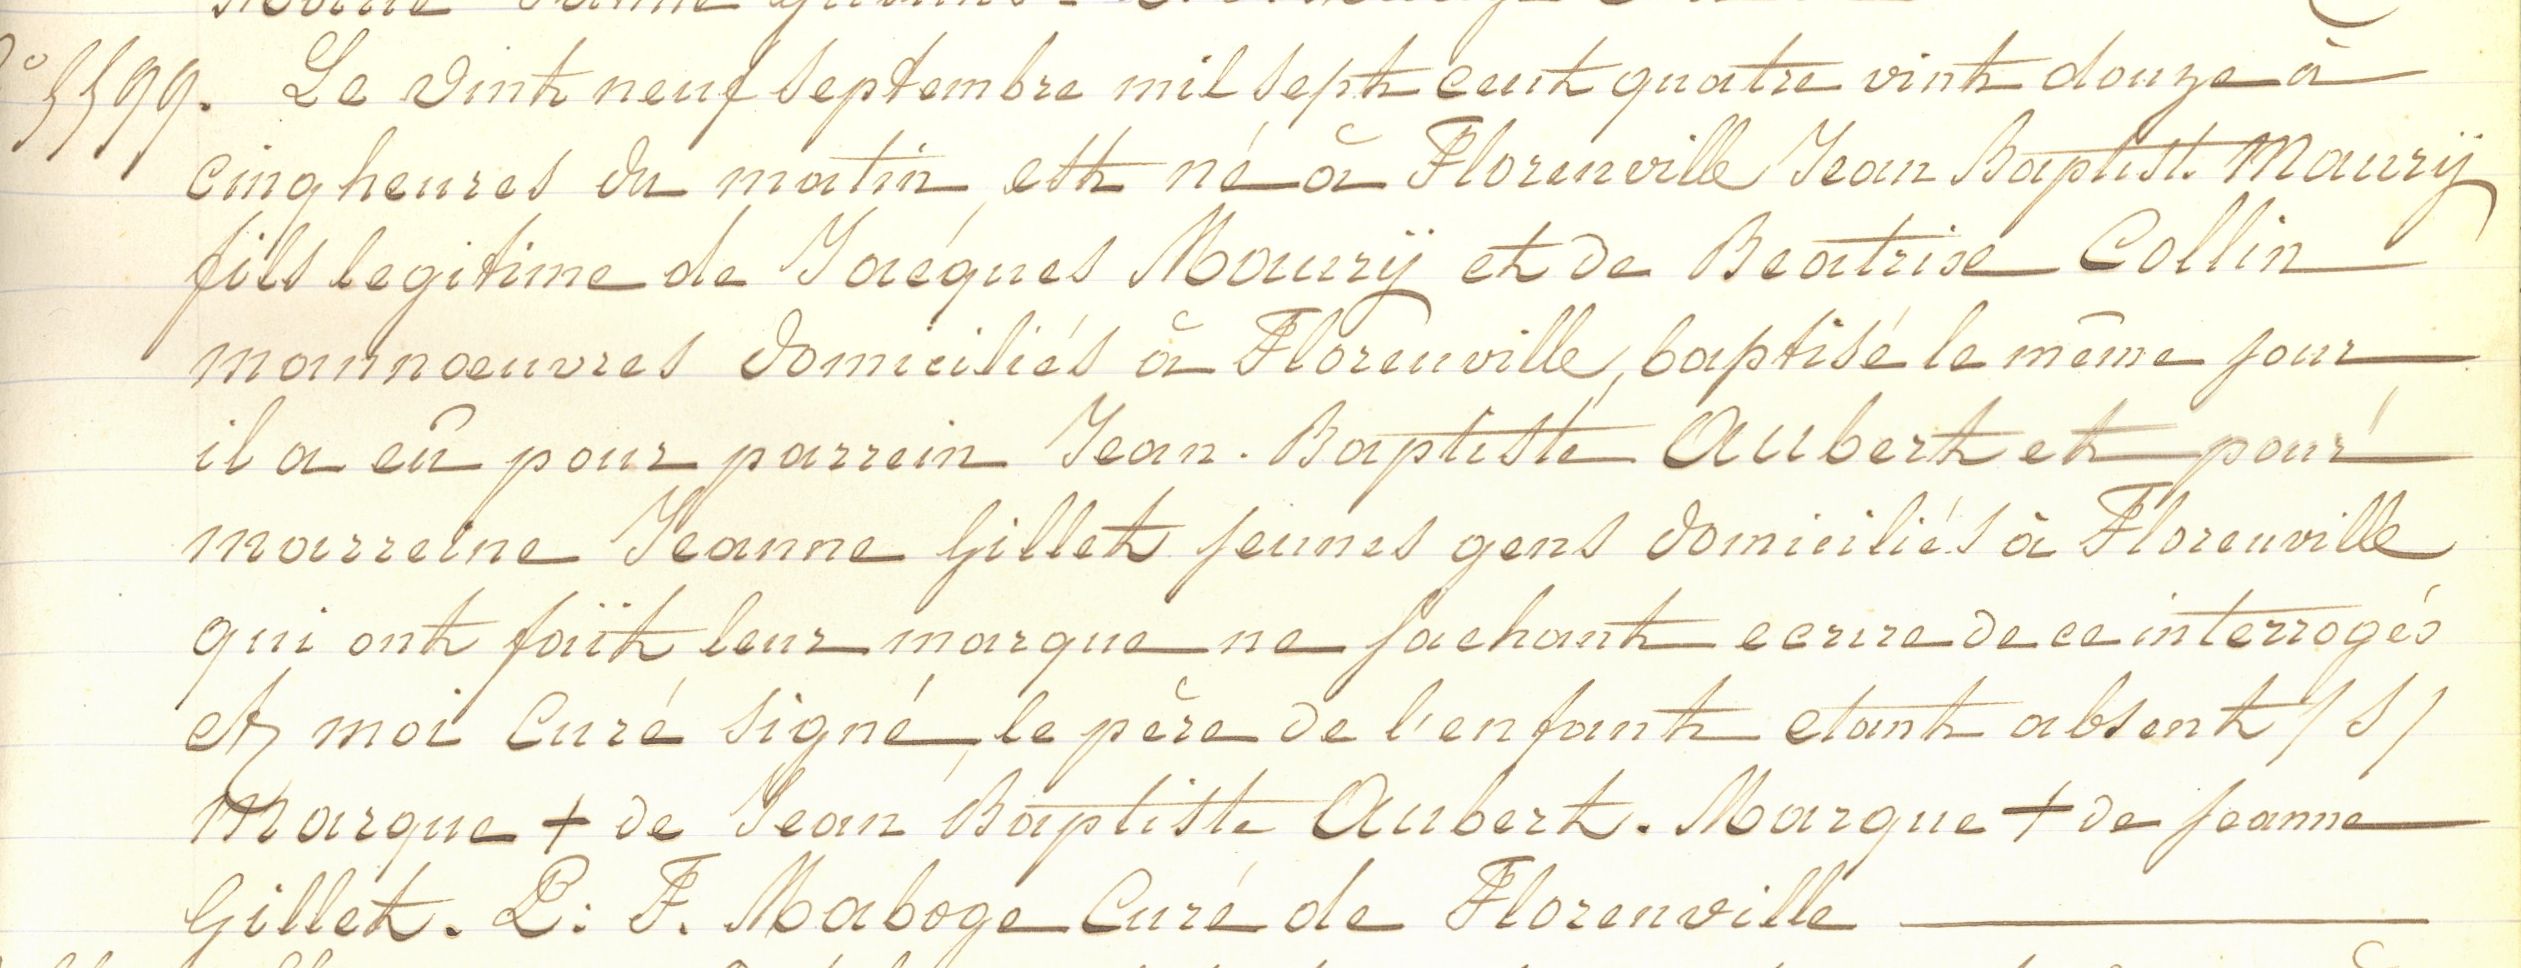 N° 5599. Le vint neuf septembre mil sept cent quatre vint douze à
cinq heures du matin, est né à Florenville Jean Baptist. Maurÿ
fils legitime de Jacques Maurÿ et de Beatrise Collin
mannoeuvres domiciliés à Florenville, baptisé le même jour
il a eû pour parrein Jean-Baptiste Aubert et pour
marreine Jeanne Gillet jeunes gens domiciliés à Florenville
qui ont faït leur marque ne sachant ecrire de ce interrogés
et moi Curé signé, le père de l'enfant etant absent /S/
Marque + de Jean Baptiste Aubert. Marque + de Jeanne
Gillet. L: F. Maboge Curé de Florenville